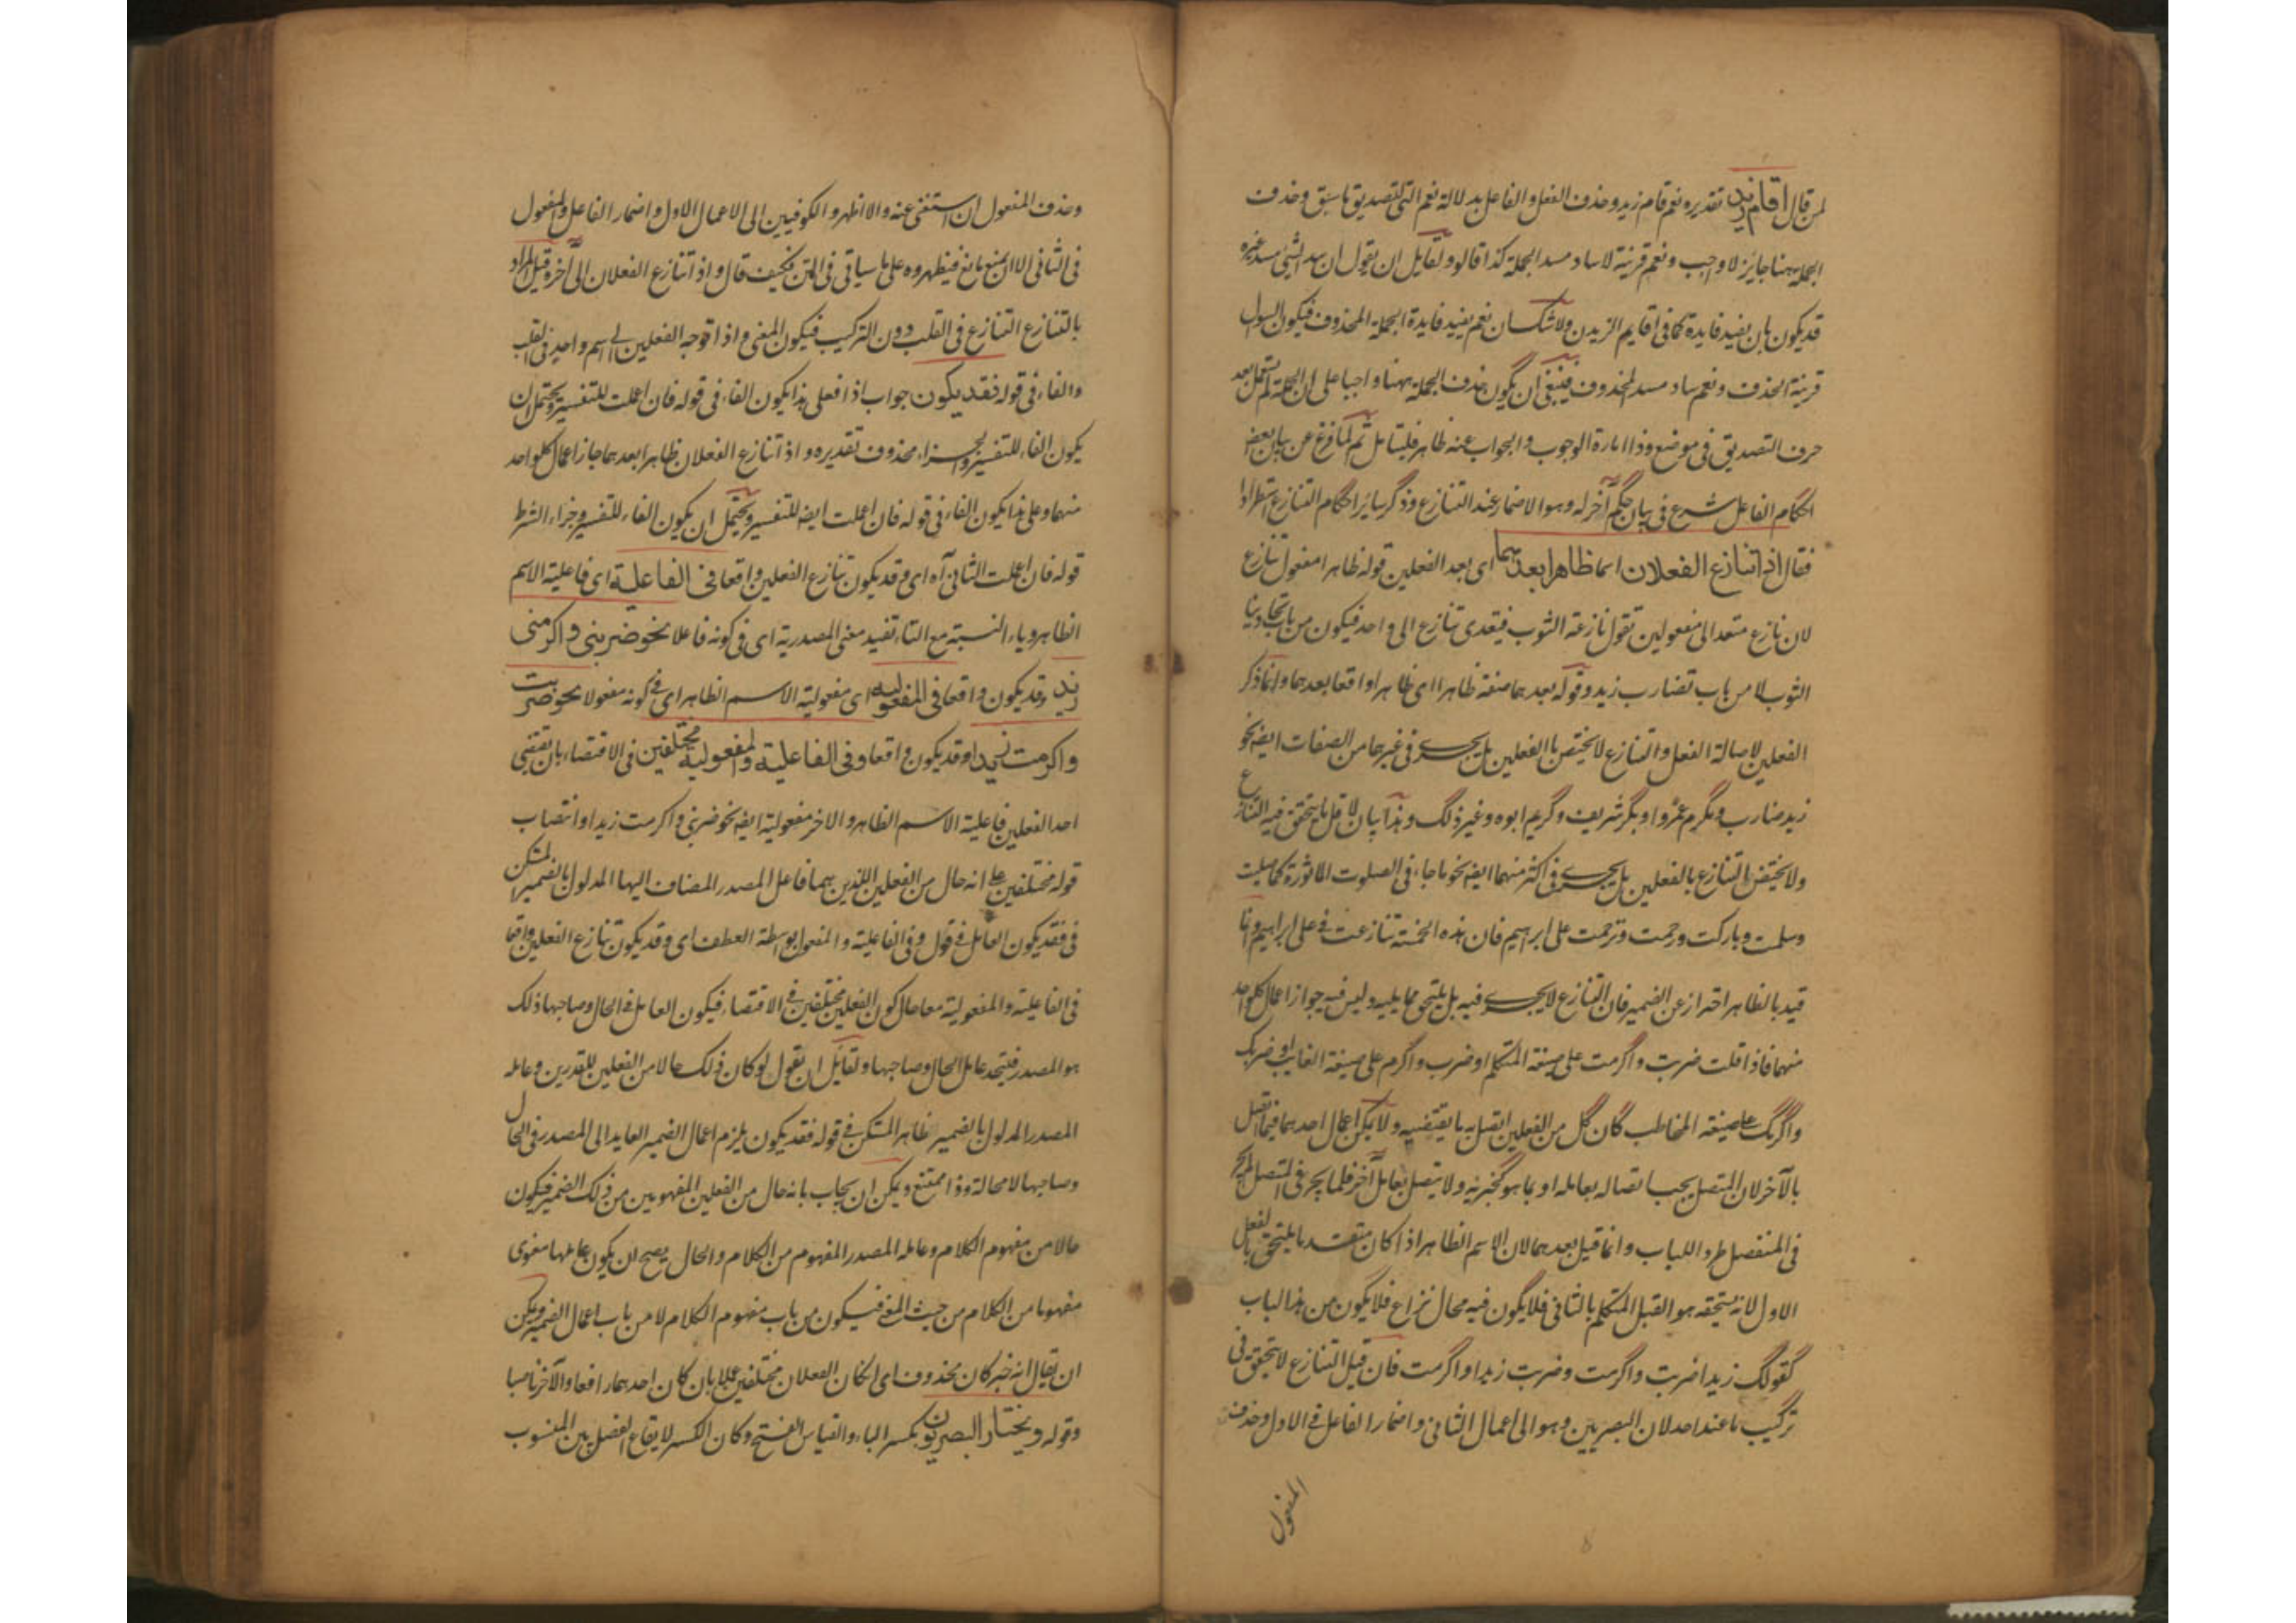 لمن قال اقام زيد تقديره نعم قام زيد وحذف الفعل والفاعل بدلالة نعم التى لتصديق ما سبق وحذف
الجملة ههنا جايز لا واجب ونعم قرينة لا ساد مسد الجملة كذا قالوا ولقايل ان يقول ان سد الشئ مسد غيره
قد يكون بان يفيد فايدة كما فى اقايم الزيدن ولا شك ان نعم يفيد فايدة الجملة المحذوف فيكون السوال
قرينة الحذف ونعم ساد مسد المحذوف فينبغى ان يكون حذف الجملة ههنا واجبا على ان الجملة لم تستعمل بعد
حرف التصديق فى موضع وذا امارة الوجوب والجواب عنه ظاهر فليتامل ثم لما فرغ عن بيان بعض
احكام الفاعل شرع فى بيان حكم آخر له وهو الاضمار عند التنازع وذكر ساير احكام التنازع استطرادا
فقال اذا تنازع الفعلان اسما ظاهرا بعدهما اى بعد الفعلين قوله ظاهرا مفعول تنازع
لان نازع متعد الى مفعولين تقول نازعته الثوب فيتعدى تنازع الى واحد فيكون من باب تجاذبنا
الثوب لا من باب تضارب زيد وقوله بعدهما صفة ظاهرا اى ظاهرا واقعا بعدهما وانما ذكر
الفعلين لاصالة الفعل والتنازع لا يختص بالفعلين بل يجرى فى غيرهما من الصفات ايضه نحو
زيد ضارب ومكرم عمروا وبكر شريف وكريم ابوه وغير ذلك وهذا بيان لاقل ما يتحقق فيه التنازع
ولا يختص التنازع بالفعلين بل يجرى فى اكثر منهما ايضه نحو ما جاء فى الصلوت الماثورة كما صليت
وسلمت وباركت ورحمت وترحمت على ابراهيم فان هذه الخمسة تنازعت فى على ابراهيم وانما
قيد بالظاهر احترازا عن الضمير فان التنازع لا يجرى فيه بل يلتحق بما يليه وليس فيه جواز اعمال كل واحد
منهما فاذا قلت ضربت واكرمت على صيغة المتكلم او ضرب واكرم على صيغة الغايب او ضربك
واكرمك على صيغة المخاطب كان كل من الفعلين اتصل به ما يقتضيه ولا يمكن اعمال احدهما فيما اتصل
بالآخر لان المتصل يجب اتصاله بعامله او بما هو كجزئه ولا يتصل بعامل آخر فلما لم يجر فى المتصل لم يجر
فى المنفصل طردا للباب وانما قيل بعدهما لان الاسم الظاهر اذا كان متقدما يلتحق بالفعل
الاول لانه يستحقه هو القبل المتكلم بالثانى فلا يكون فيه مجال نزاع فلا يكون من هذا الباب
كقولك زيدا ضربت واكرمت وضربت زيدا واكرمت فان قيل التنازع لا يتحقق فى
تركيب ما عند احد لان البصريين وهو الى اعمال الثانى واضمار الفاعل فى الاول وحذف
المفعول
وحذف المفعول ان استغنى عنه والا اظهر والكوفيين الى الاعمال الاول واضمار الفاعل والمفعول
فى الثانى الا ان يمنع مانع فيظهروه على ما سياتى فى المتن فكيف قال واذا تنازع الفعلان الى آخره قيل المراد
بالتنازع التنازع فى القلب دون التركيب فيكون المعنى واذا توجه الفعلين الى اسم واحد فى القلب
والفاء فى قوله فقد يكون جواب اذا فعلى هذا يكون الفاء فى قوله فان اعملت للتفسير ويحتمل ان
يكون الفاء للتفسير والجزاء محذوف تقديره واذا تنازع الفعلان ظاهرا بعدهما جاز اعمال كل واحد
منهما وعلى هذا يكون الفاء فى قوله فان اعملت ايضه للتفسير ويحتمل ان يكون الفاء للتفسير وجزاء الشرط
قوله فان اعملت الثانى آه اى وقد يكون تنازع الفعلين واقعا فى الفاعلية اى فاعلية الاسم
الظاهر وياء النسبة مع التاء تفيد معنى المصدرية اى فى كونه فاعلا نحو ضربنى واكرمنى
زيد وقد يكون واقعا فى المفعولية اى مفعولية الاسم الظاهر اى فى كونه مفعولا نحو ضربت
واكرمت زيدا وقد يكون واقعا وفى الفاعلية والمفعولية مختلفين فى الاقتضاء بان يقتضى
احد الفعلين فاعلية الاسم الظاهر والاخر مفعوليته ايضه نحو ضربنى واكرمت زيدا وانتصاب
قوله مختلفين على انه حال من الفعلين اللذين هما فاعل المصدر المضاف اليها المدلول بالضمير المستكن
فى فقد يكون العامل فى قول وفى الفاعلية والمفعول بوسطة العطف اى وقد يكون تنازع الفعلين واقعا
فى الفاعلية والمفعولية معا حال كون الفعلين مختلفين فى الاقتضاء فيكون العامل فى الحال وصاحبها ذلك
هو المصدر فيتحد عامل الحال وصاحبها ولقايل ان يقول لو كان ذلك حالا من الفعلين للقدرين وعامله
المصدر المدلول بالضمير ظاهر المستكن فى قوله فقد يكون يلزم اعمال الضمير العايد الى المصدر فى الحال
وصاحبها لا محالة وذا ممتنع ويمكن ان يجاب بانه حال من الفعلين المفهومين من ذلك الضمير فيكون
حالا من مفهوم الكلام وعامله المصدر المفهوم من الكلام والحال يصح ان يكون عاملها معنوى
مفهوما من الكلام من حيث المعنى فيكون من باب مفهوم الكلام لا من باب اعمال الضمير ويمكن
ان يقال انه خبر كان محذوف اى ان كان الفعلان مختلفين عملا بان كان احدهما رافعا والآخر ناصبا
وقوله ويختار البصريون بكسر الباء والقياس الفتح وكان الكسر لايقاع الفصل بين المنسوب